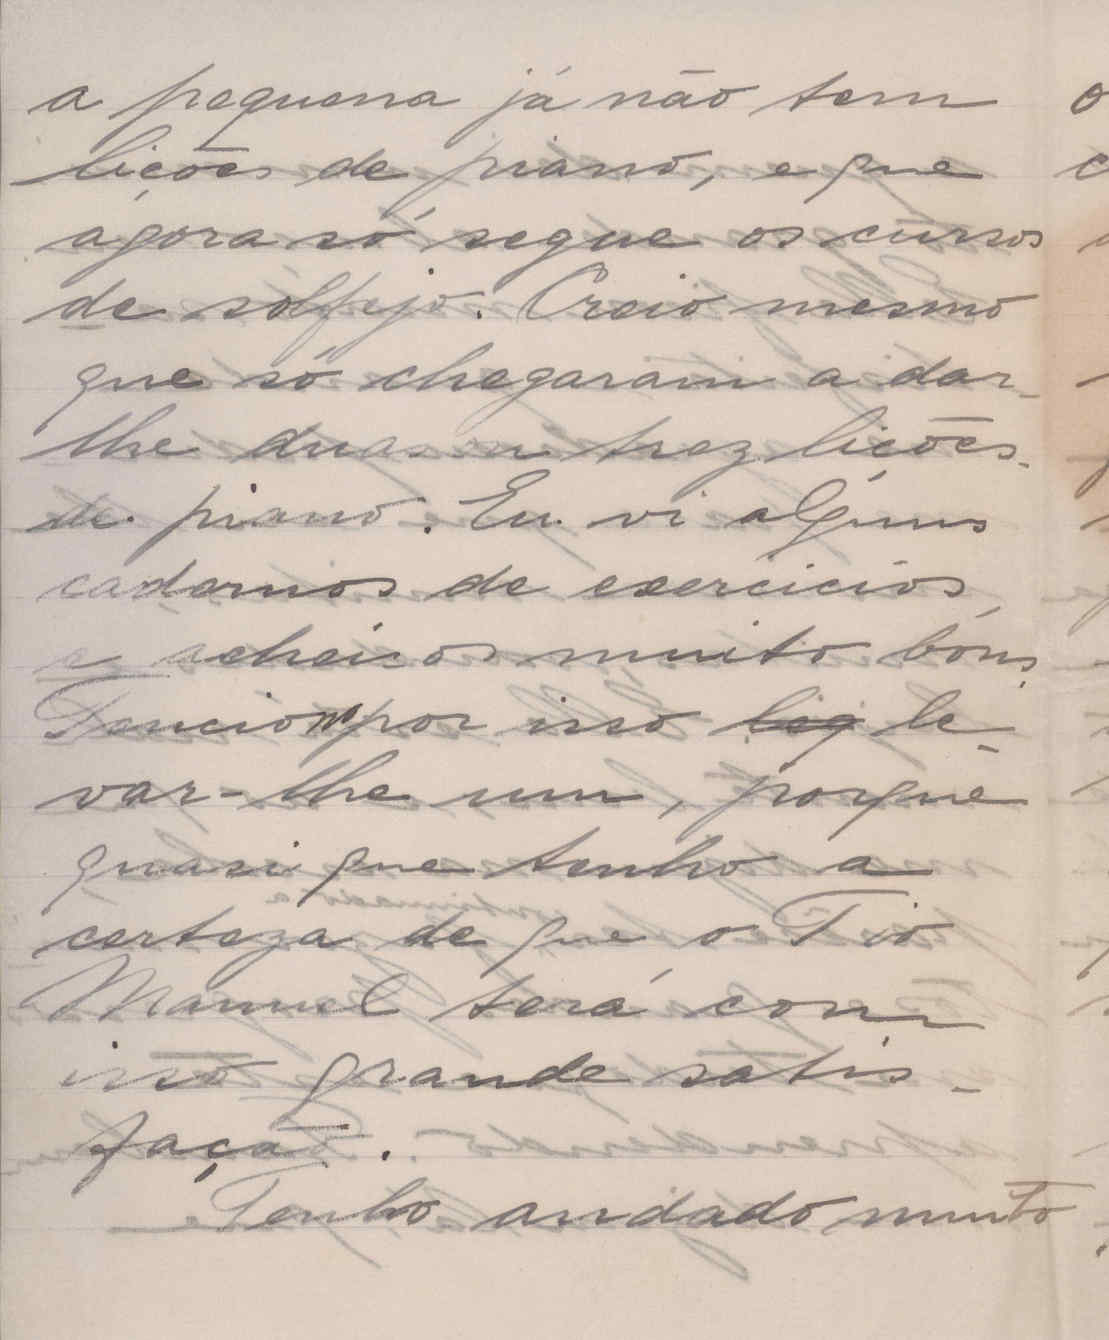 a pequena já não tem
lições de piano, e que
agora só segue os cursos
de solfejo. Creio mesmo
que só chegaram a dar
lhe duas ou trez lições
de piano. Eu vi alguns
cadernos de exercicios,
e achei-os muito bons,
Tenciono por isso leg le-
var-lhe um, porque
quasi que tenho a
certeza de que o Tio
Manuel terá com
isso grande satis-
fação.
Tenho andado muito